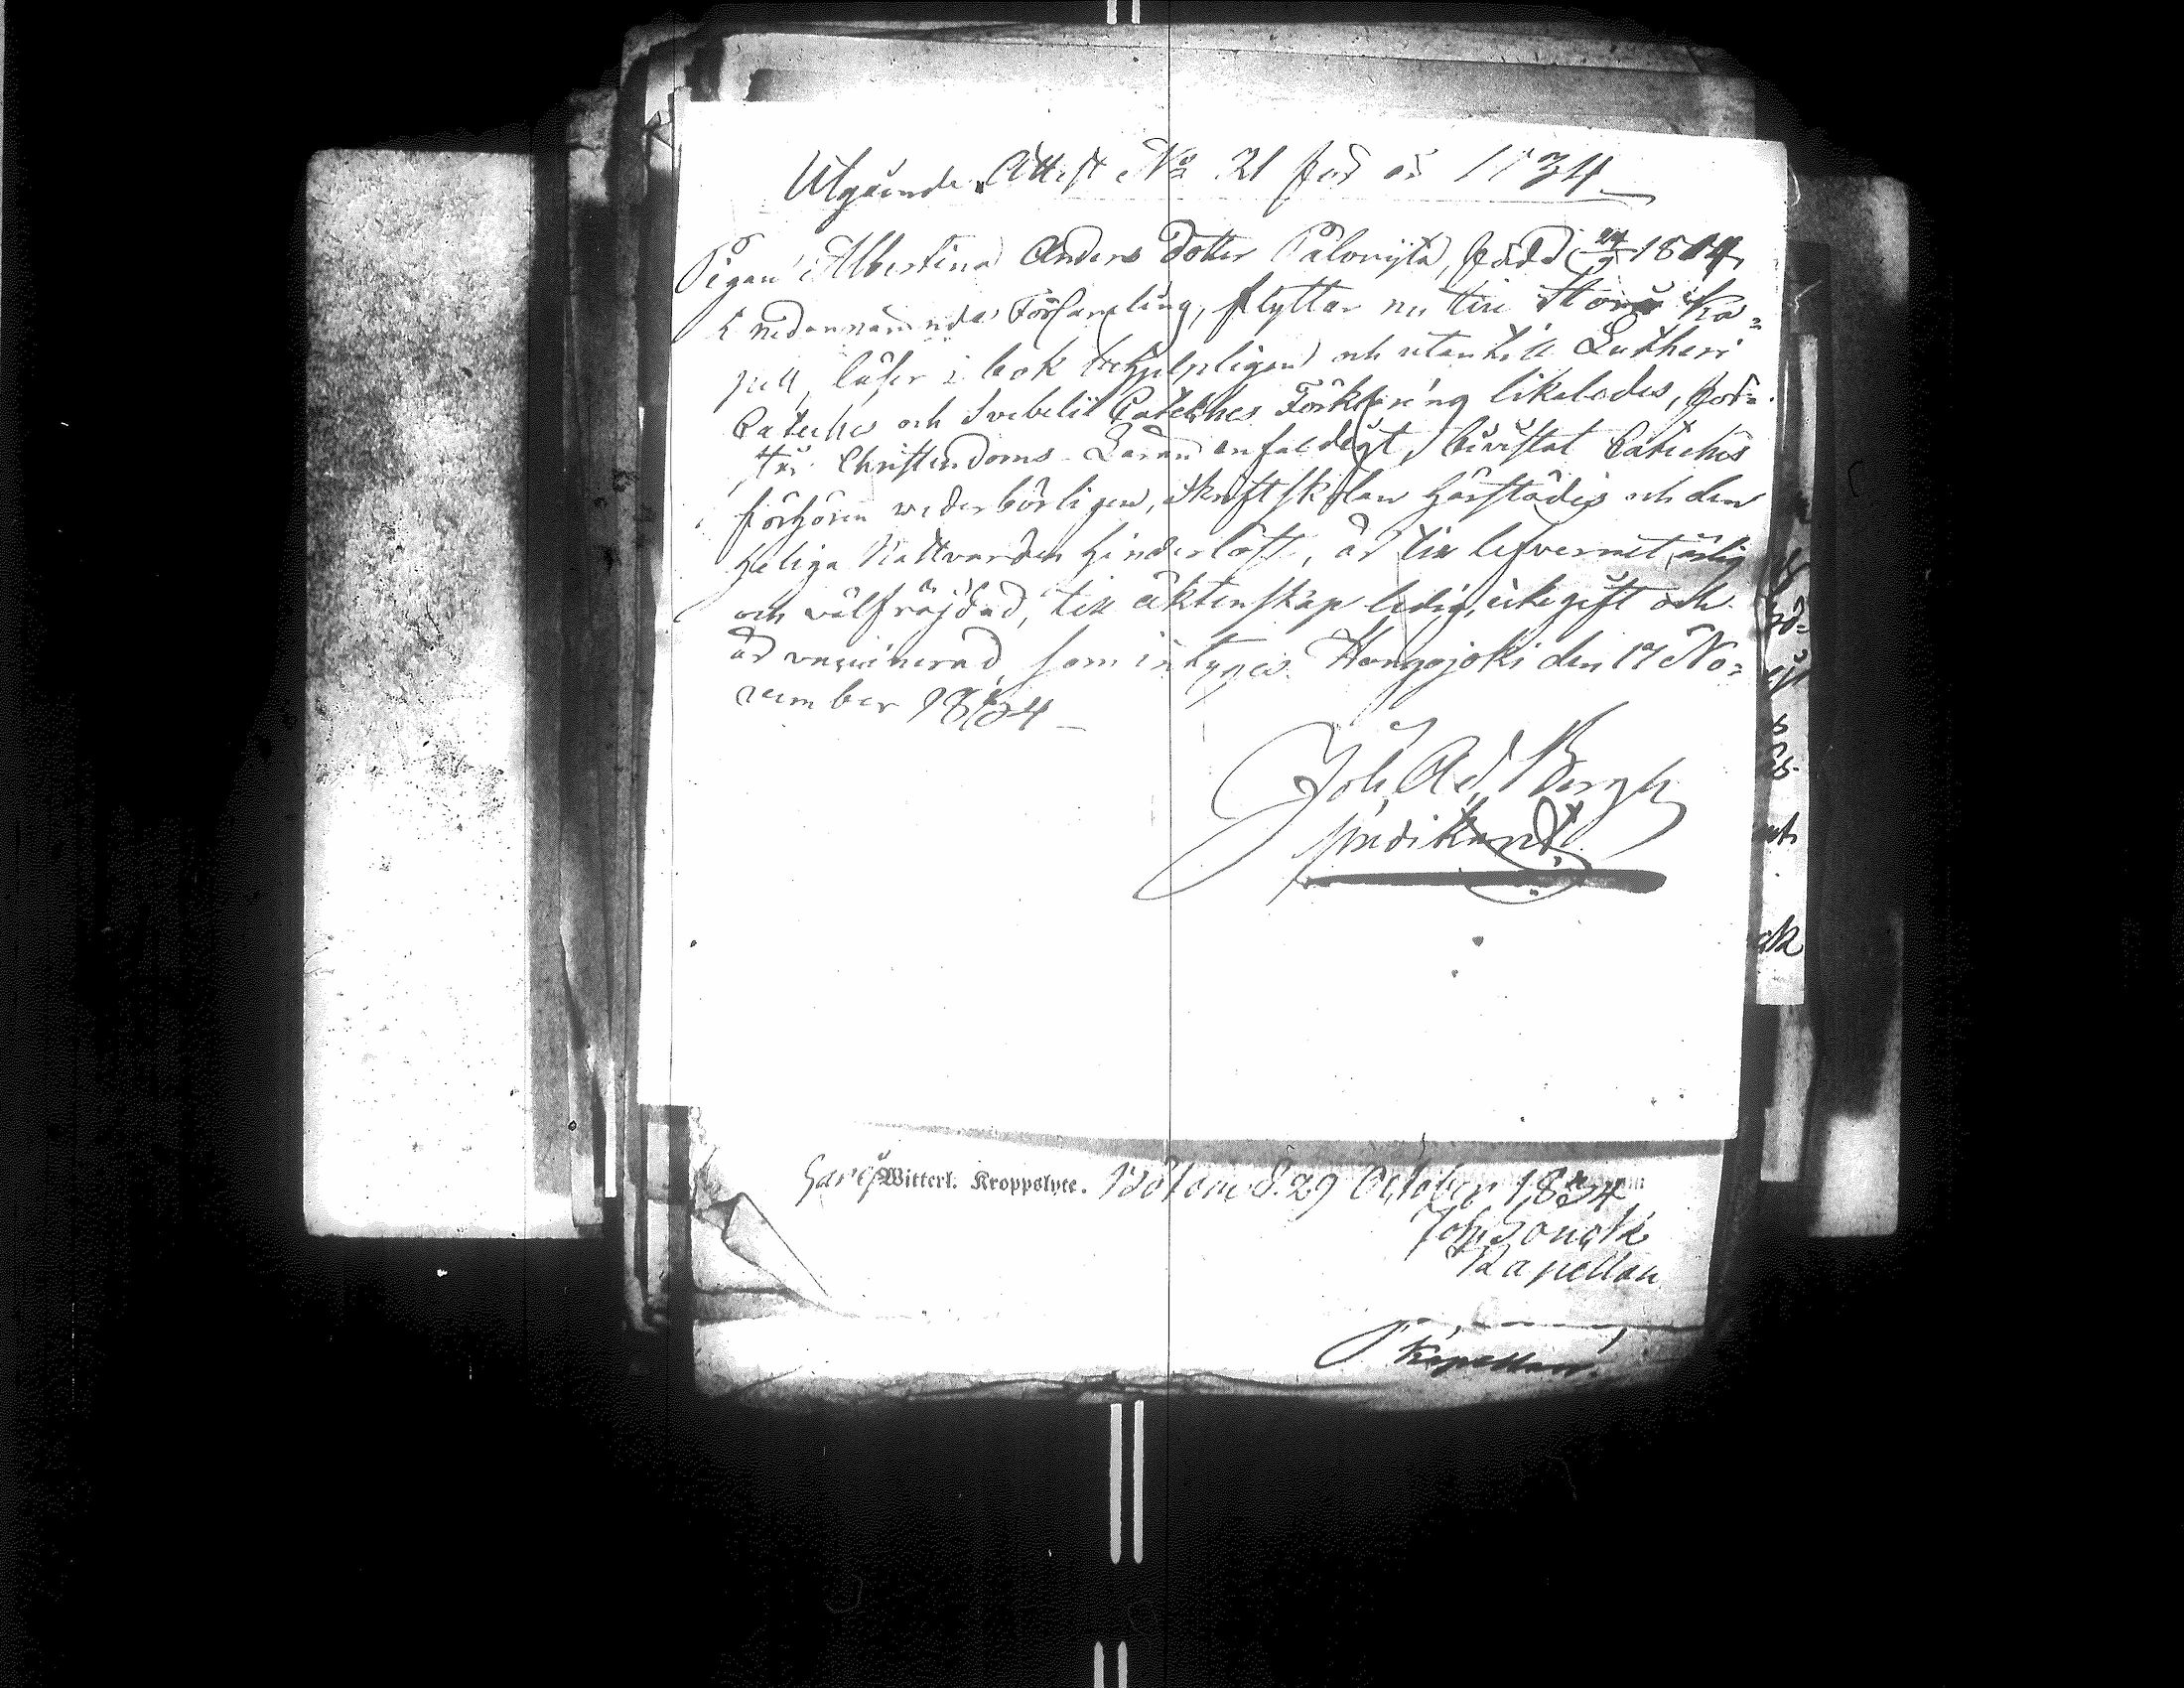 Utgående Attest No 21 för år 1834
Pigan Albertina Anders Dotter Palomylä, född 1814
i nedannämnde Församling, flyttar nu till Storå Ka=
pell, läser i bok behjelpligen och utantill Lutheri
Cateches och Svebelii Cateches Förklaring likaledes, för=
står Christendoms Läran enfaldigt, bevistat Catechis
förhören wederbörligen, skriftskolan härstädes och den
Heliga Nattvarden hinderlöst, är till lefvernet ärlig
och välfräjdad, till äktenskap ledig, icke gift och
är vaccinerad, som intygas. Hongojoki den 17 No=
vember 1834
Joh. Ad. Bergh
predikant.
Witterl. Kroppslyte. Bötom d. 29 October 1834
Joh.
Kapellan
Kapellan.